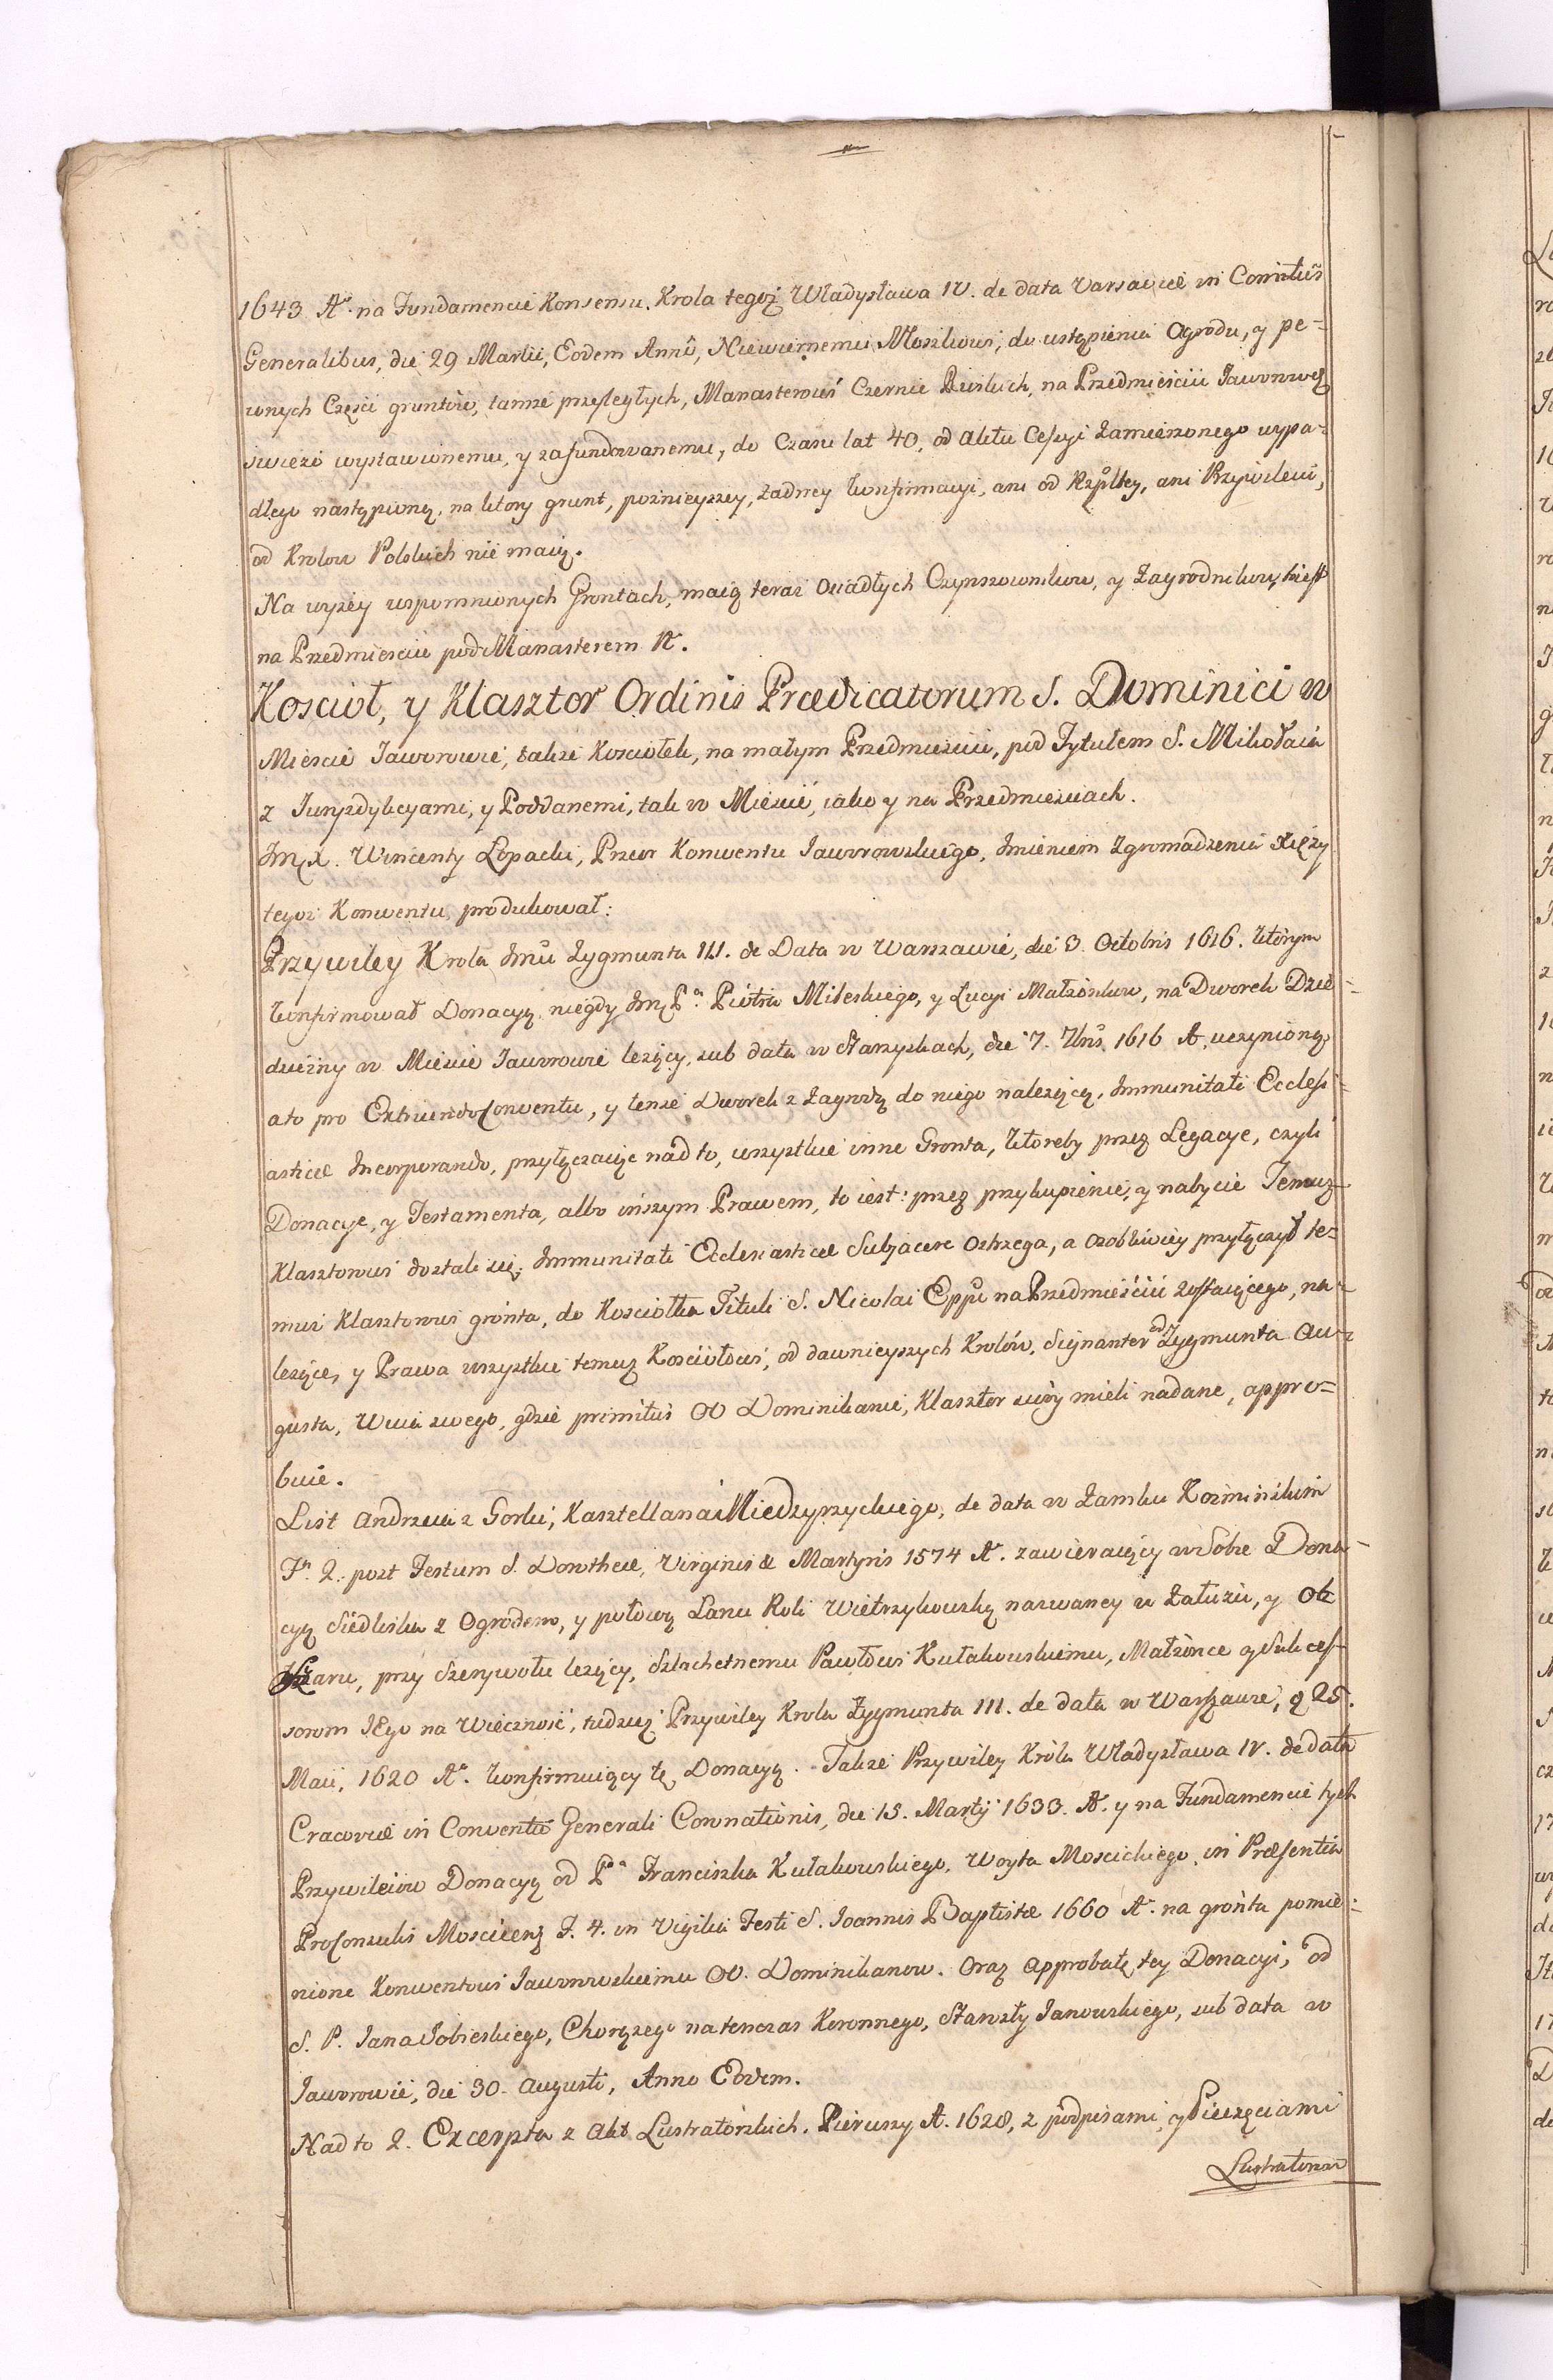 1643 Aº. na Fundamencie Konsensu Krola tegoż Władysława IV. de data Varsaviæ in Comitijs
Generalibus, die 29 Martii, Eodem Annô, Niewiernemu Moszkowi, do ustąpienia Ogrodu, y pe=
wnych Części gruntów, tamże przyległych, Manasterowi Czernic Ruskich, na Przedmieściu Jaworows:
swieżo wystawionemu, y zafundowanemu, do Czasu lat 40, od aktu Cessyi zamierzonego wypa-
dłego nastąpioną, na ktory grunt, poznieyszey, żadney konfirmacyi, ani od Rzpltey, ani Przywileiu,
od Krolow Polskich nie maią.
Na wyżey wspomnionych Grontach, maią teraz Osiadłych Czynszownikow, y Zagrodnikow, to iest
na Przedmiesciu pod Manasterem Nº.
Koscioł, y Klasztor Ordinis Prædicatorum S. Dominici w
Miescie Jaworowie, także Kosciołek, na małym Przedmiesciu, pod Tytułem S. Mikołaia
z Juryzdykcyami, y Poddanemi, tak w Miescie, iako y na Przedmiesciach.
Jmx. Wincenty Łopacki, Przeor Konwentu Jaworowskiego, Imieniem Zgromadzenia Xięży
tegoż Konwentu, produkował:
Przywiley Krola Jmci Zygmunta III. de Data w Warszawie, die 3. Octobris 1616. którym
konfirmował Donacyą niegdy Jmć Pª. Piotra Mileskiego, y Łucyi Małżonków, na Dworek Dzie-
dziczny w Miescie Jaworowie leżący, sub data w Starzyskach, die 7. 7bris 1616 Aº. uczynioną,
a to pro Extruendo Conventu, y tenże Dworek z Zagrodą do niego należącą, Immunitati Ecclesi-
asticæ Incorporando, przyłączaiąc nad to, wszystkie inne Gronta, któreby przez Legacye, czyli
Donacye, y Testamenta, albo inszym Prawem, to iest: przez przykupienie, y nabycie Temuz
Klasztorowi dostali się, Immunitati Ecclesiasticæ Subjacere Ostrzega, a osobliwiey przyłączył te=
muż Klasztorowi gronta, do Kosciołka Tituli S. Nicolai Eppi na Przedmieściu zostaiącego, na=
leżące, y Prawa wszystkie temuz Kosciołowi, od dawnieyszych Krolów, Signanter od Zygmunta Au=
gusta, Wuia swego, gdzie primitus OO Dominikanie, Klasztor swóy mieli nadane, appro=
buie.
List Andrzeia z Gorki, Kasztellana Miedzyrzyckiego, de data w Zamku Kozminskim
Fª. 2. post Festum S. Dorotheæ, Virginis & Martyris 1574 Aº. zawieraiący w Sobie Dona-
cyą Siedliska z Ogrodem, y połową Łanu Roli Wietrzykowską nazwaney w Załuziu, y Ob
szaru, przy Szerywotu leżący, Szlachetnemu Pawłowi Kułakowskiemu, Małżonce y Sukces-
sorom IEgo na Wieczność, tudzież Przywiley Krola Zygmunta III. de data w Warszawie, 25.
Maii, 1620 Aº. konfirmuiący tę Donacyą. Także Przywiley Króla Władysława IV. de data
Cracoviæ in Conventu Generali Coronationis, die 15. Martij 1633. Aº. y na Fundamencie tych
Przywileiow Donacyą od Pª. Franciszka Kułakowskiego, Woyta Moscickiego, in Præsentia
Proconsulis Moscicens F. 4. in Vigilia Festi S. Joannis Baptistæ 1660 Aº. na gronta pomie=
nione Konwentowi Jaworowskiemu OO. Dominikanow. Oraz Approbatę tey Donacyi, od
S. P. Jana Sobieskiego, Chorążego natenczas Koronnego, Starosty Janowskiego, sub data w
Jaworowie, die 30. Augusti, Anno Eodem.
Nad to 2. Excerpta z Akt Lustratorskich. Pierwszy A. 1628, z podpisami, y Pieczęciami
Lustratorow